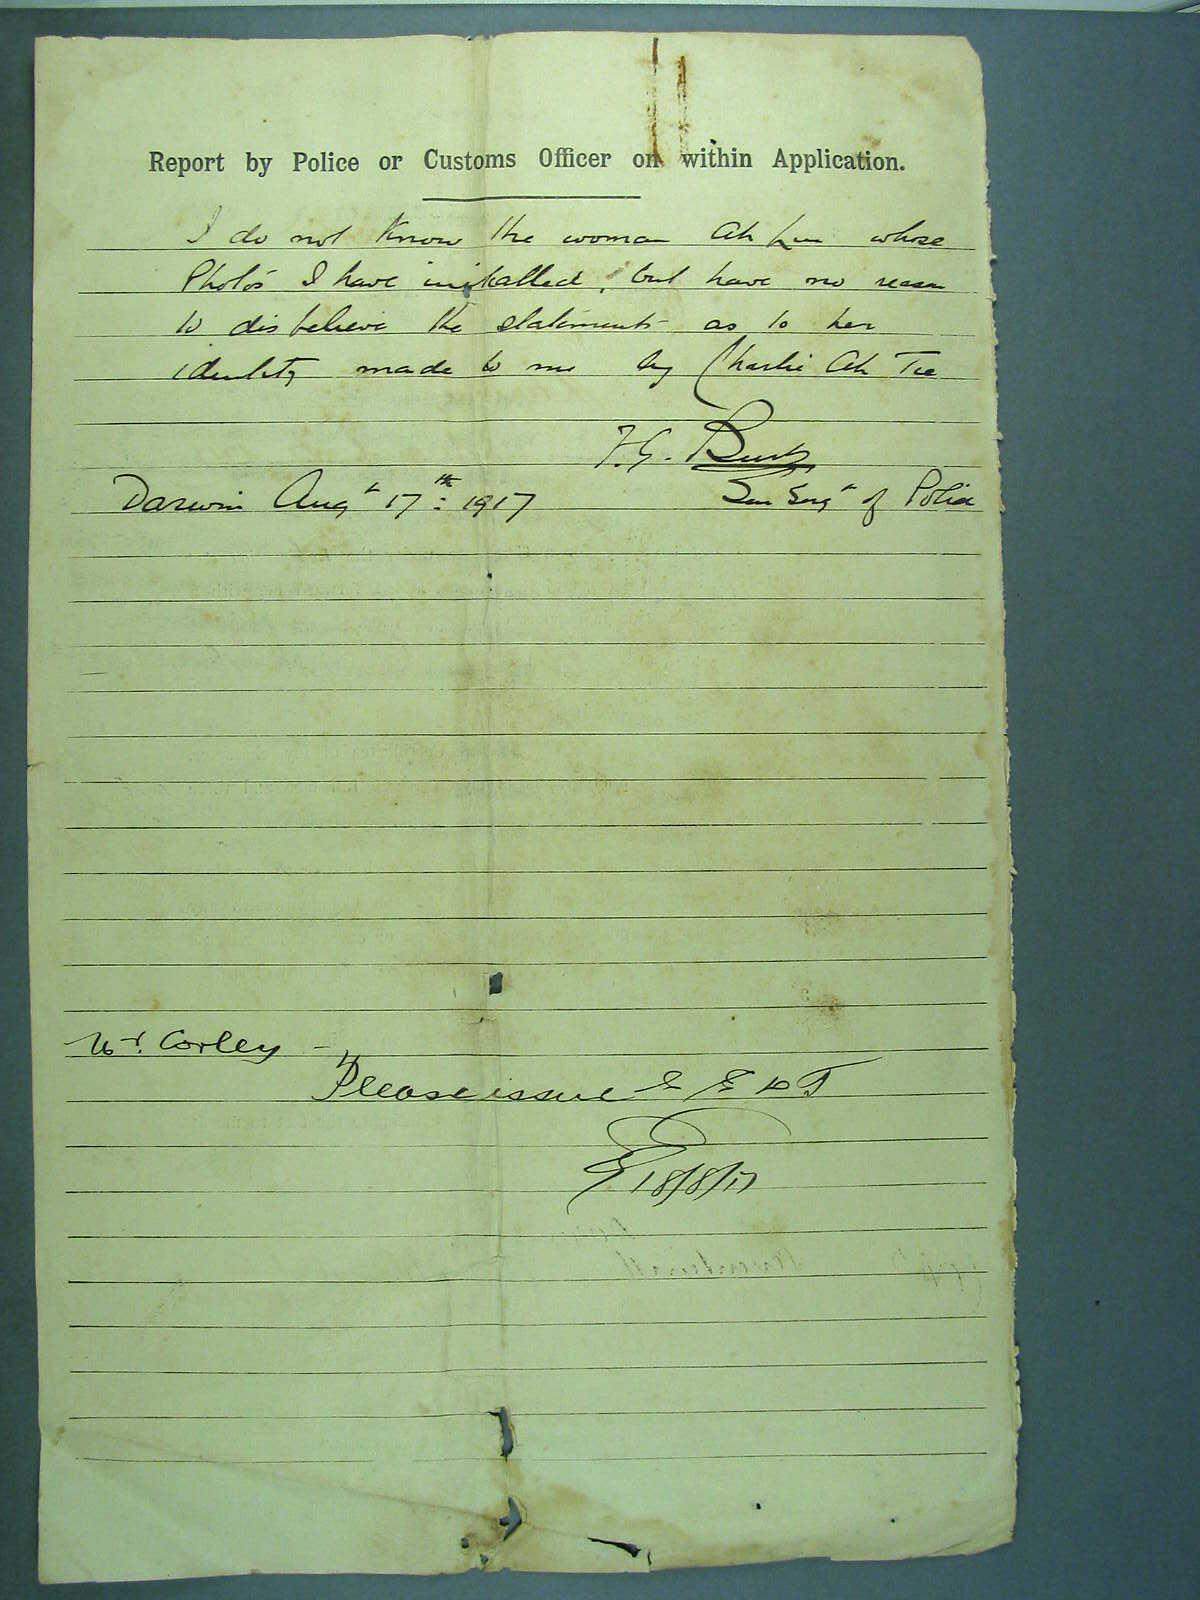 Report by Police or Customs Officer on within Application.
I do not know the woman Ah Lin whose
Photo's I have initialled, but have no reason
to disbelieve the statements as to her
identity made to me by Charlie Ah Tie
F.G. Burt
Darwin Augt 17th: 1917
Sen Sergt of Police
Mr. Corley –
Please issue
18/8/17